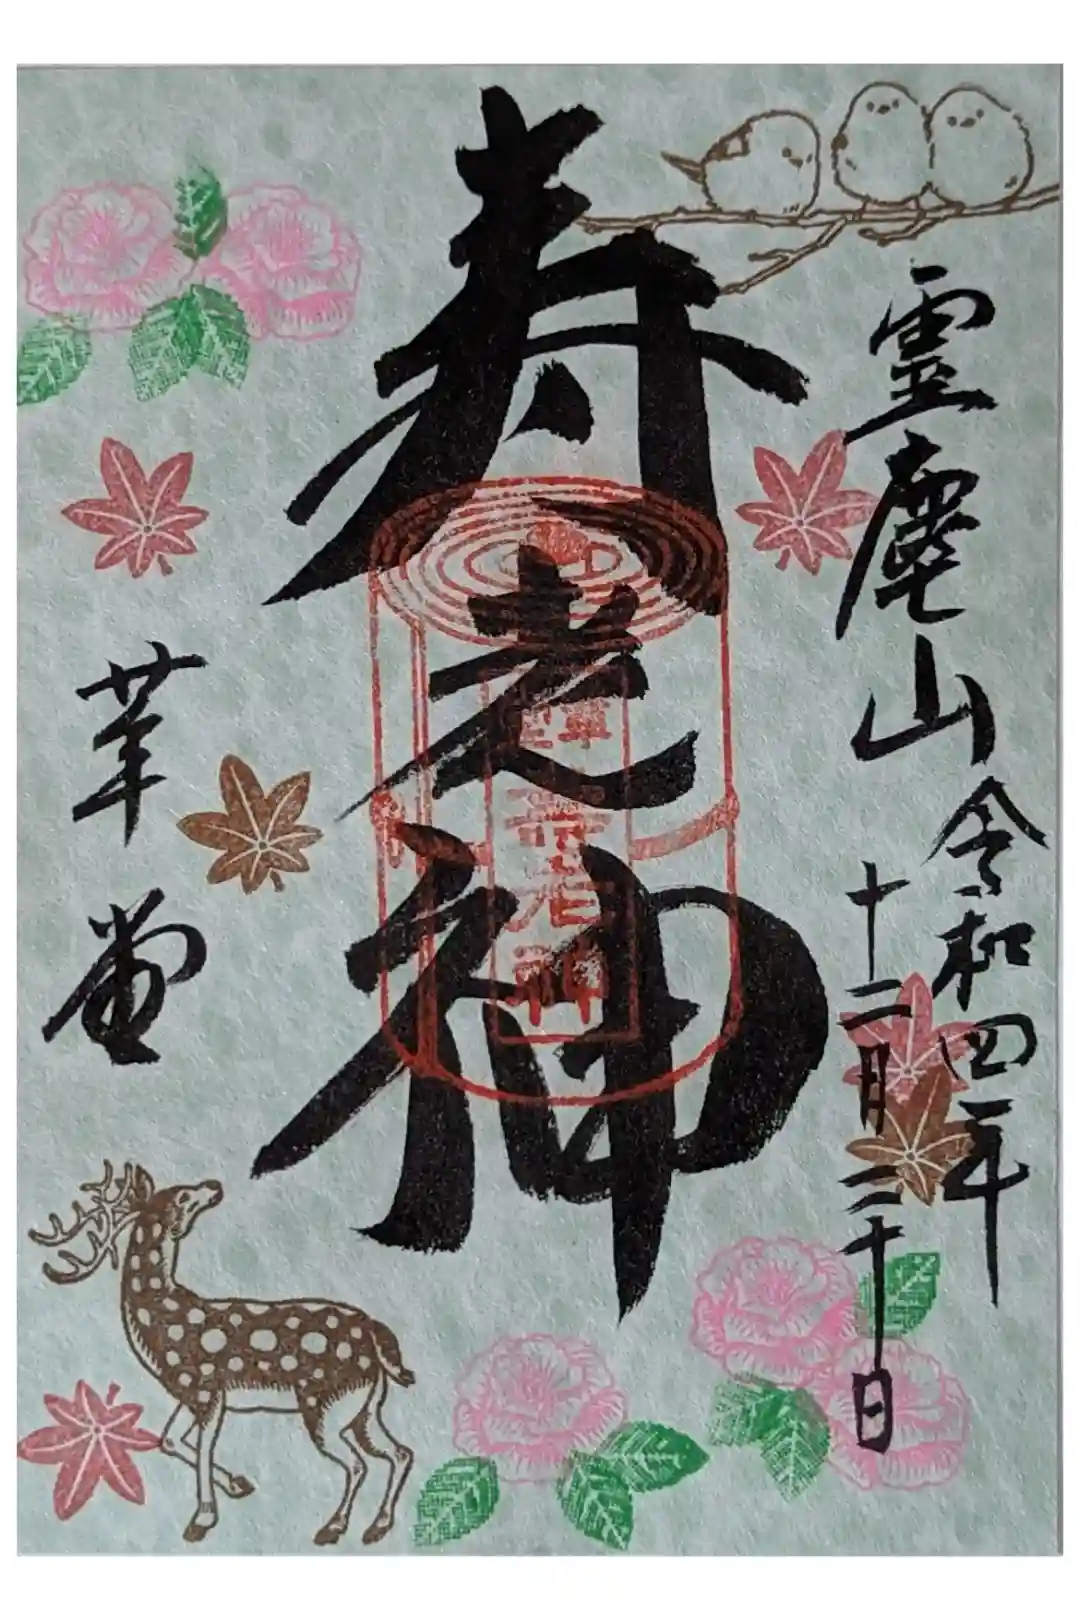 霊麀山
令和四年
十二月二十日
寿老神
革堂